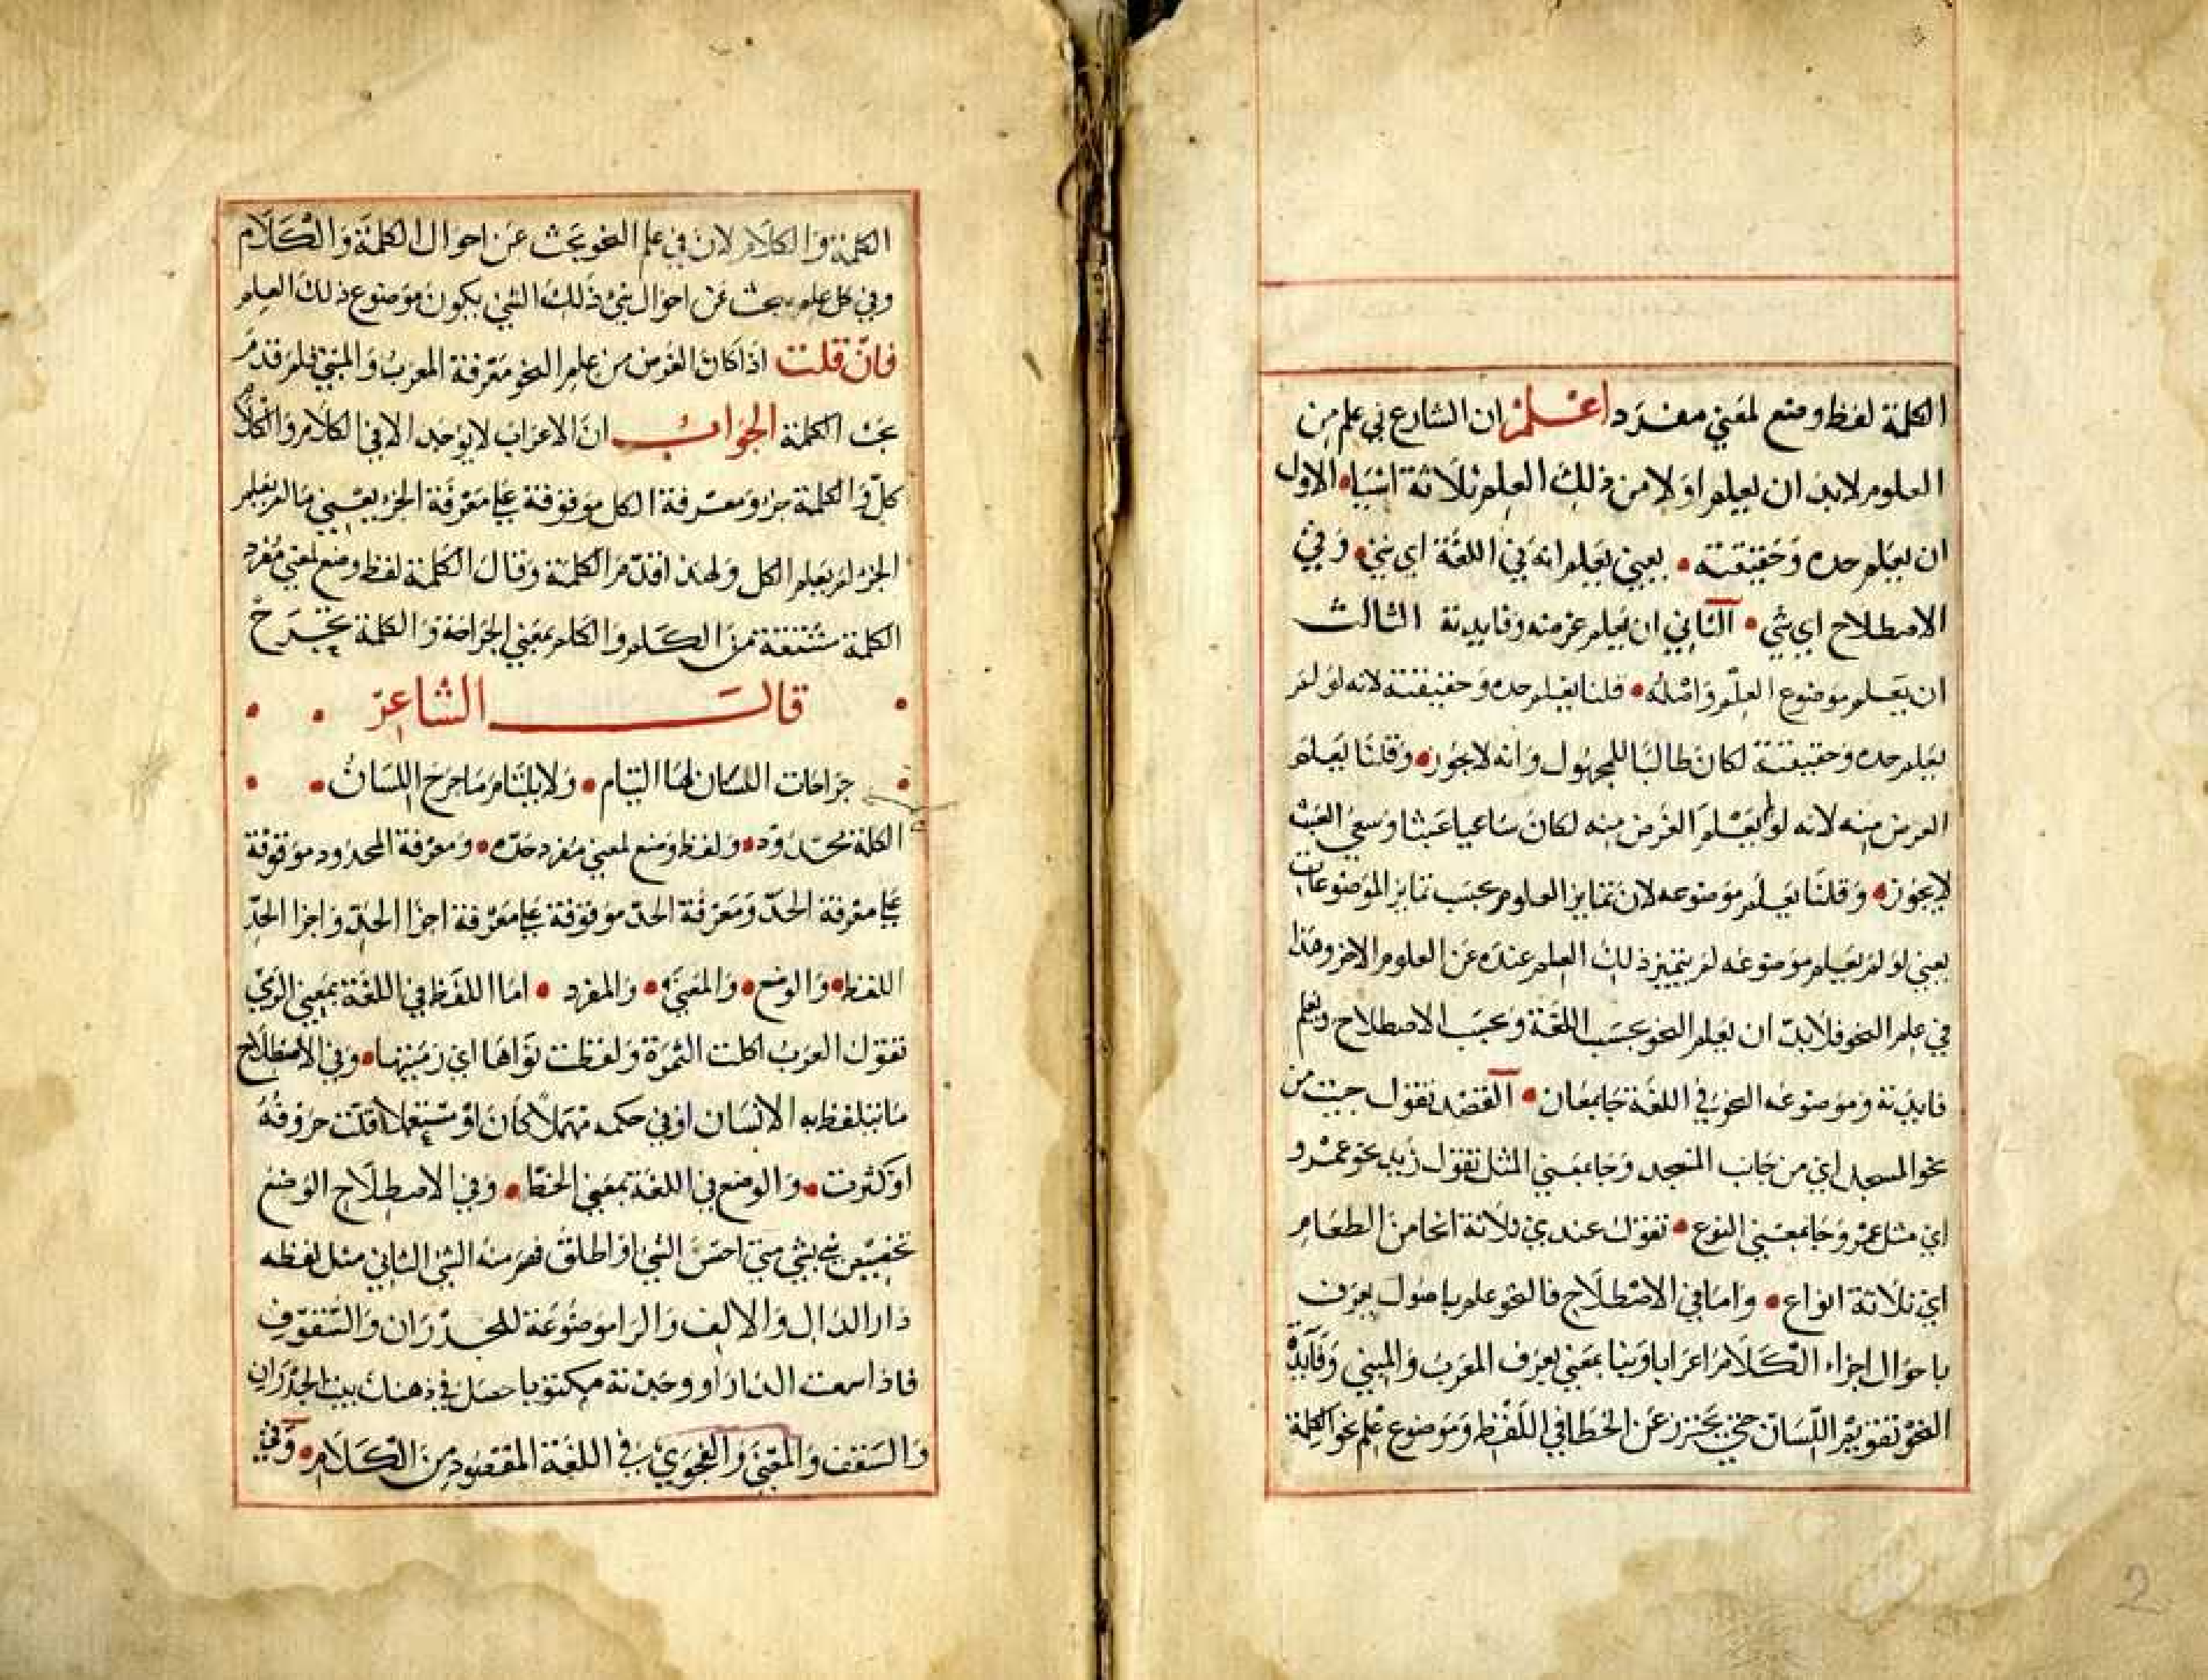 الكلمة لفظ وضع لمعني مفرد اعلم ان الشارع في علم من
العلوم لابد ان يعلم اولا من ذلك العلم ثلاثة اشياء الاول
ان يعلم حده وحقيقته يعني يعلم انه في اللغة اي شئ وفي
الاصطلاح اي شي الثاني ان يعلم غرضه وفايدته الثالث
ان يعلم موضوع العلم واصله قلنا يعلم حده وحقيقته لانه لو لم
يعلم حده وحقيقته لكان طالبا للمجهول وانه لا يجوز وقلنا يعلم
الغرض منه لانه لو لم يعلم الغرض منه لكان ساعيا عبثا وسعي العبث
لا يجوز وقلنا يعلم موضوعه لان تمايز العلوم بحسب تمايز الموضوعات
يعني لو لم يعلم موضوعه لم يتميز ذلك العلم عنده عن العلوم الاخر وهذا
في علم النحو فلابد ان يعلم النحو بحسب اللغة وبحسب الاصطلاح ويعلم
فايدته وموضوعه النحو في اللغة جا بمعان القصد تقول جيت من
نحو المسجد اي من جانب المسجد وجا بمعني المثل تقول زيد نحو عمرو
اي مثل عمرو جا بمعني النوع تقول عندي ثلاثة انحا من الطعام
اي ثلاثة انواع واما في الاصطلاح فالنحو علم باصول يعرف
باحوال اجزاء الكلام اعرابا وبنا بمعني يعرف المعرب والمبني وفايدة
النحو تقويم اللسان حتي يحترز عن الخطا في اللفظ وموضوع علم نحو الكلمة
الكلمة والكلام لان في علم النحو يبحث عن احوال الكلمة والكلام
وفي كل علم يبحث عن احوال شئ ذلك الشئ يكون موضوع ذلك العلم
فان قلت اذا كان الغرض من علم النحو معرفة المعرب والمبني فلم قدم
بحث الكلمة الجواب ان الاعراب لا يوجد الا في الكلام والكلام
كل والكلمة جز ومعرفة الكل موقوفة علي معرفة الجز يعني ما لم يعلم
الجز لم يعلم الكل ولهذا قدم الكلمة وقال الكلمة لفظ وضع لمعني مفرد
الكلمة مشتقة من الكلم والكلم بمعني الجراحة والكلمة تجرح
قال الشاعر
جراحات اللسان لها التيام ولا يلتام ما جرح اللسان
الكلمة محدود ولفظ وضع لمعني مفرد حده ومعرفة المحدود موقوفة
علي معرفة الحد ومعرفة الحد موقوفة علي معرفة اجزا الحد واجزا الحد
اللفظ والوضع والمعني والمفرد اما اللفظ في اللغة بمعني الرمي
تقول العرب اكلت التمرة ولفظت نواها اي رميتها وفي الاصطلاح
ما يتلفظ به الانسان او في حكمه مهملا كان او مستعملا قلت حروفه
او كثرت والوضع في اللغة بمعني الحط وفي الاصطلاح الوضع
تخصيص شي بشي متي احس الشئ او اطلق فهم منه الشئ الثاني مثل لفظه
دار الدال والالف والرا موضوعة للجدران والسقوف
فاذا سمعت الدار او وجدته مكتوبا حصل في ذهنك بيت الجدران
والسقف والمعني والفحوي في اللغة المقصود من الكلام وفي